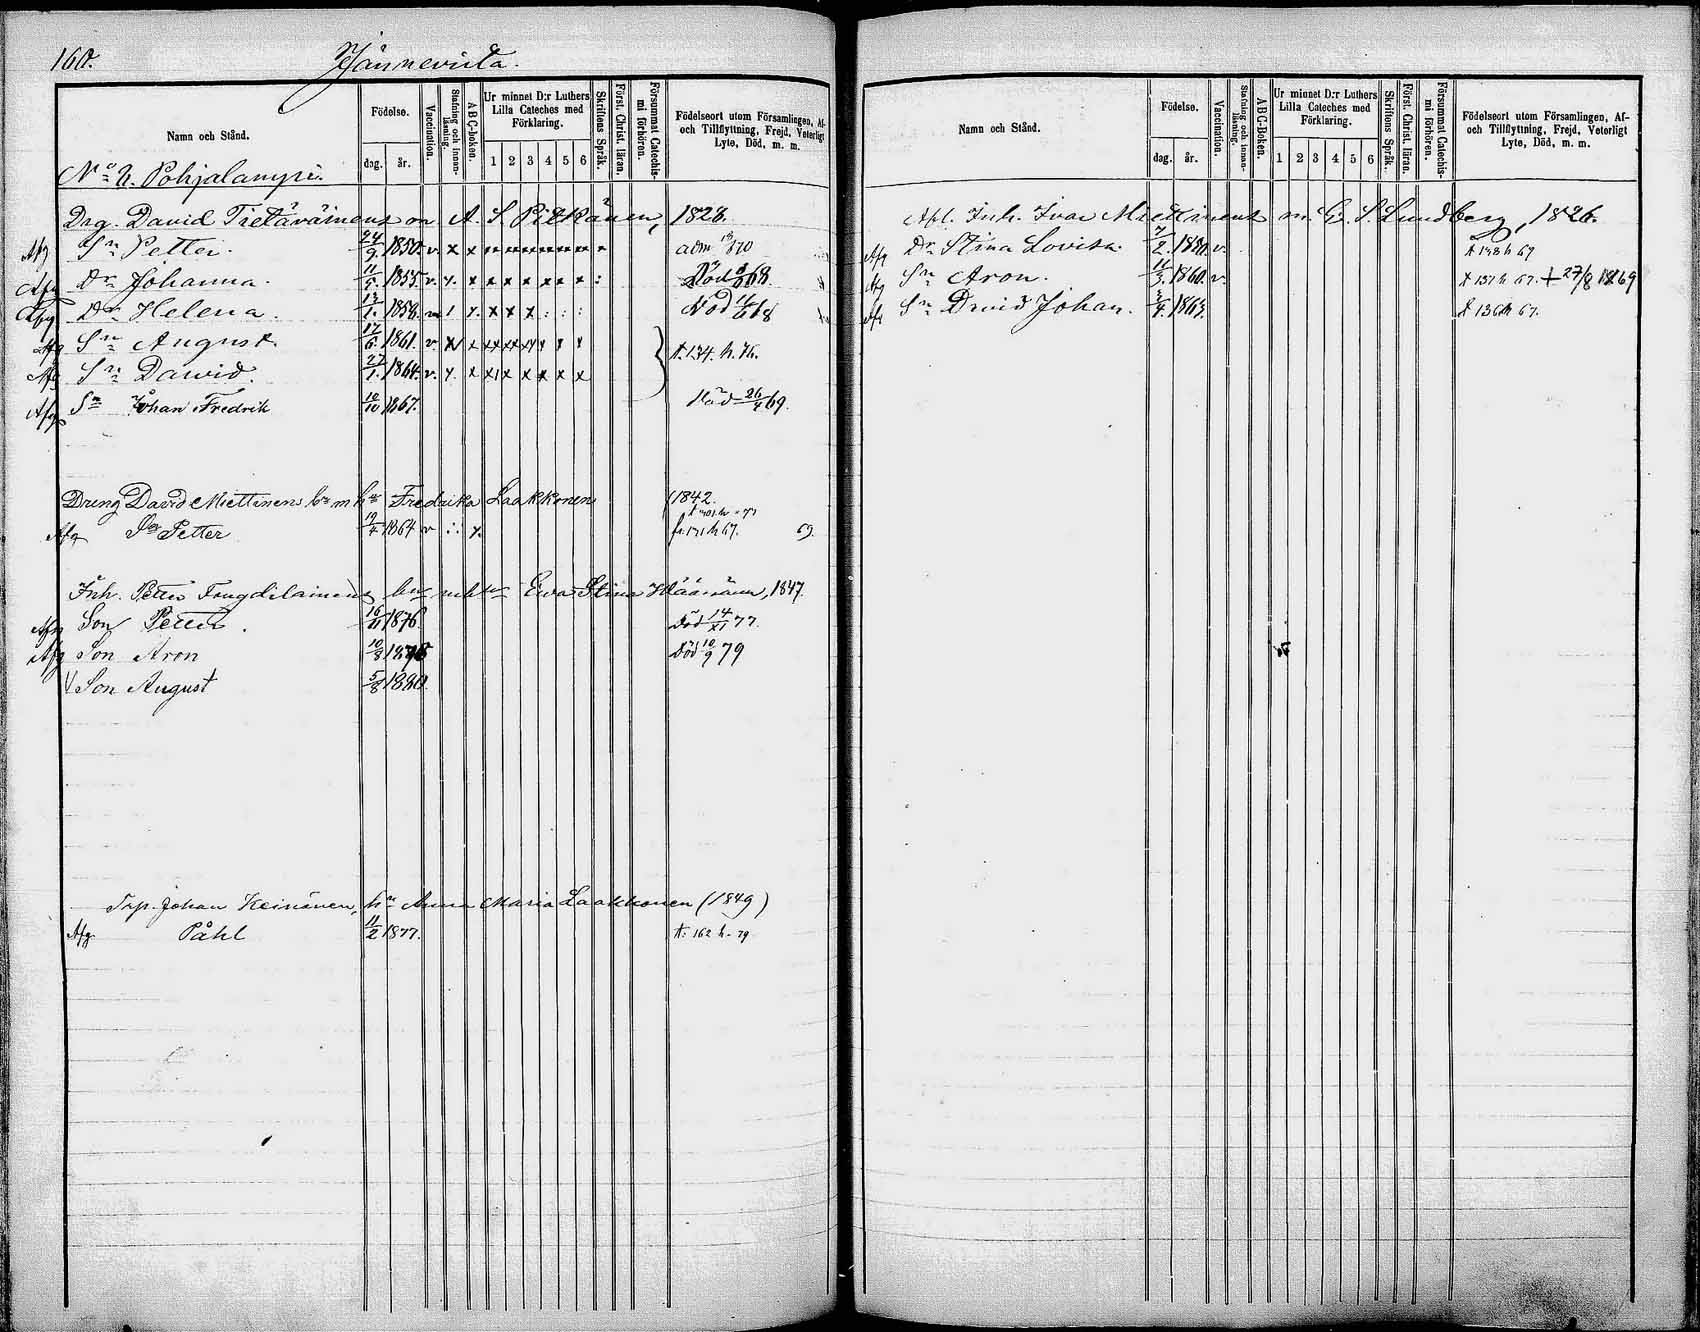 160.
Jännevirta.
Namn och Stånd.
Födelse.
dag.
år.
Vaccination.
Stafning och Innanläsning.
A B C-boken.
Ur minnet D:r Luthers
Lilla Cateches med
Förklaring.
1 2 3 4 5 6
Skriftens Språk.
Först. Christ. läran.
Försummat Catechismi förhören.
Födelseort utom Församlingen, Af-
och Tillflyttning, Frejd, Veterligt
Lyte, Död, m. m.
No 2. Pohjalampi.
Drg. David Tietäväinens m A. S. Pitkänen, 1828.
Afg Sn Petter. 24/9 1850. v. x x
Afg Dr Johanna. 11/5 1855. v. x x x x x x x : Död 68.
Afg Dr Helena. 13/1 1858. x x x : : : Död 68
Afg Sn August. 17/6 1861. v. x x
Afg Sn David. 27/1 1864. v. x x x x x x t. 134. h. 76.
Afg Sn Johan Fredrik 10/10 1867. Död 26/4 69.
Dreng David Miettinens hu Fredrika Laakkonen 1842.
Afg Son Petter 19/4 1864 v 67. 69.
Inh. Petter hu Ewa Stina 1847.
Afg Son Petter. 16/11 1876 Död 14/XI 77.
Afg Son Aron 10/8 1878 Död 10/9 79
Son August 5/8 1880.
Johan Keinänen, hn Anna Maria Laakkonen (1849)
Afg. Påhl 11/2 1877. t: 162 h. 79
Namn och Stånd.
Födelse.
dag.
år.
Vaccination.
Stafning och Innanläsning.
A B C-Boken.
Ur minnet D:r Luthers
Lilla Cateches med
Förklaring.
1 2 3 4 5 6
Skriftens Språk.
Först. Christ. läran.
Försummat Catechismi förhören.
Födelseort utom Församlingen, Af-
och Tillflyttning, Frejd, Veterligt
Lyte, Död, m. m.
Inh. Ivar Miettinens m. S. Lundberg, 1826.
Afg Dr Stina Lovisa. v. t 138 h 67
Afg Sn Aron. 1860. v. t 137 h 67. + 27/8 1869
Afg Sn David Johan. 1863. t 136 h 67.